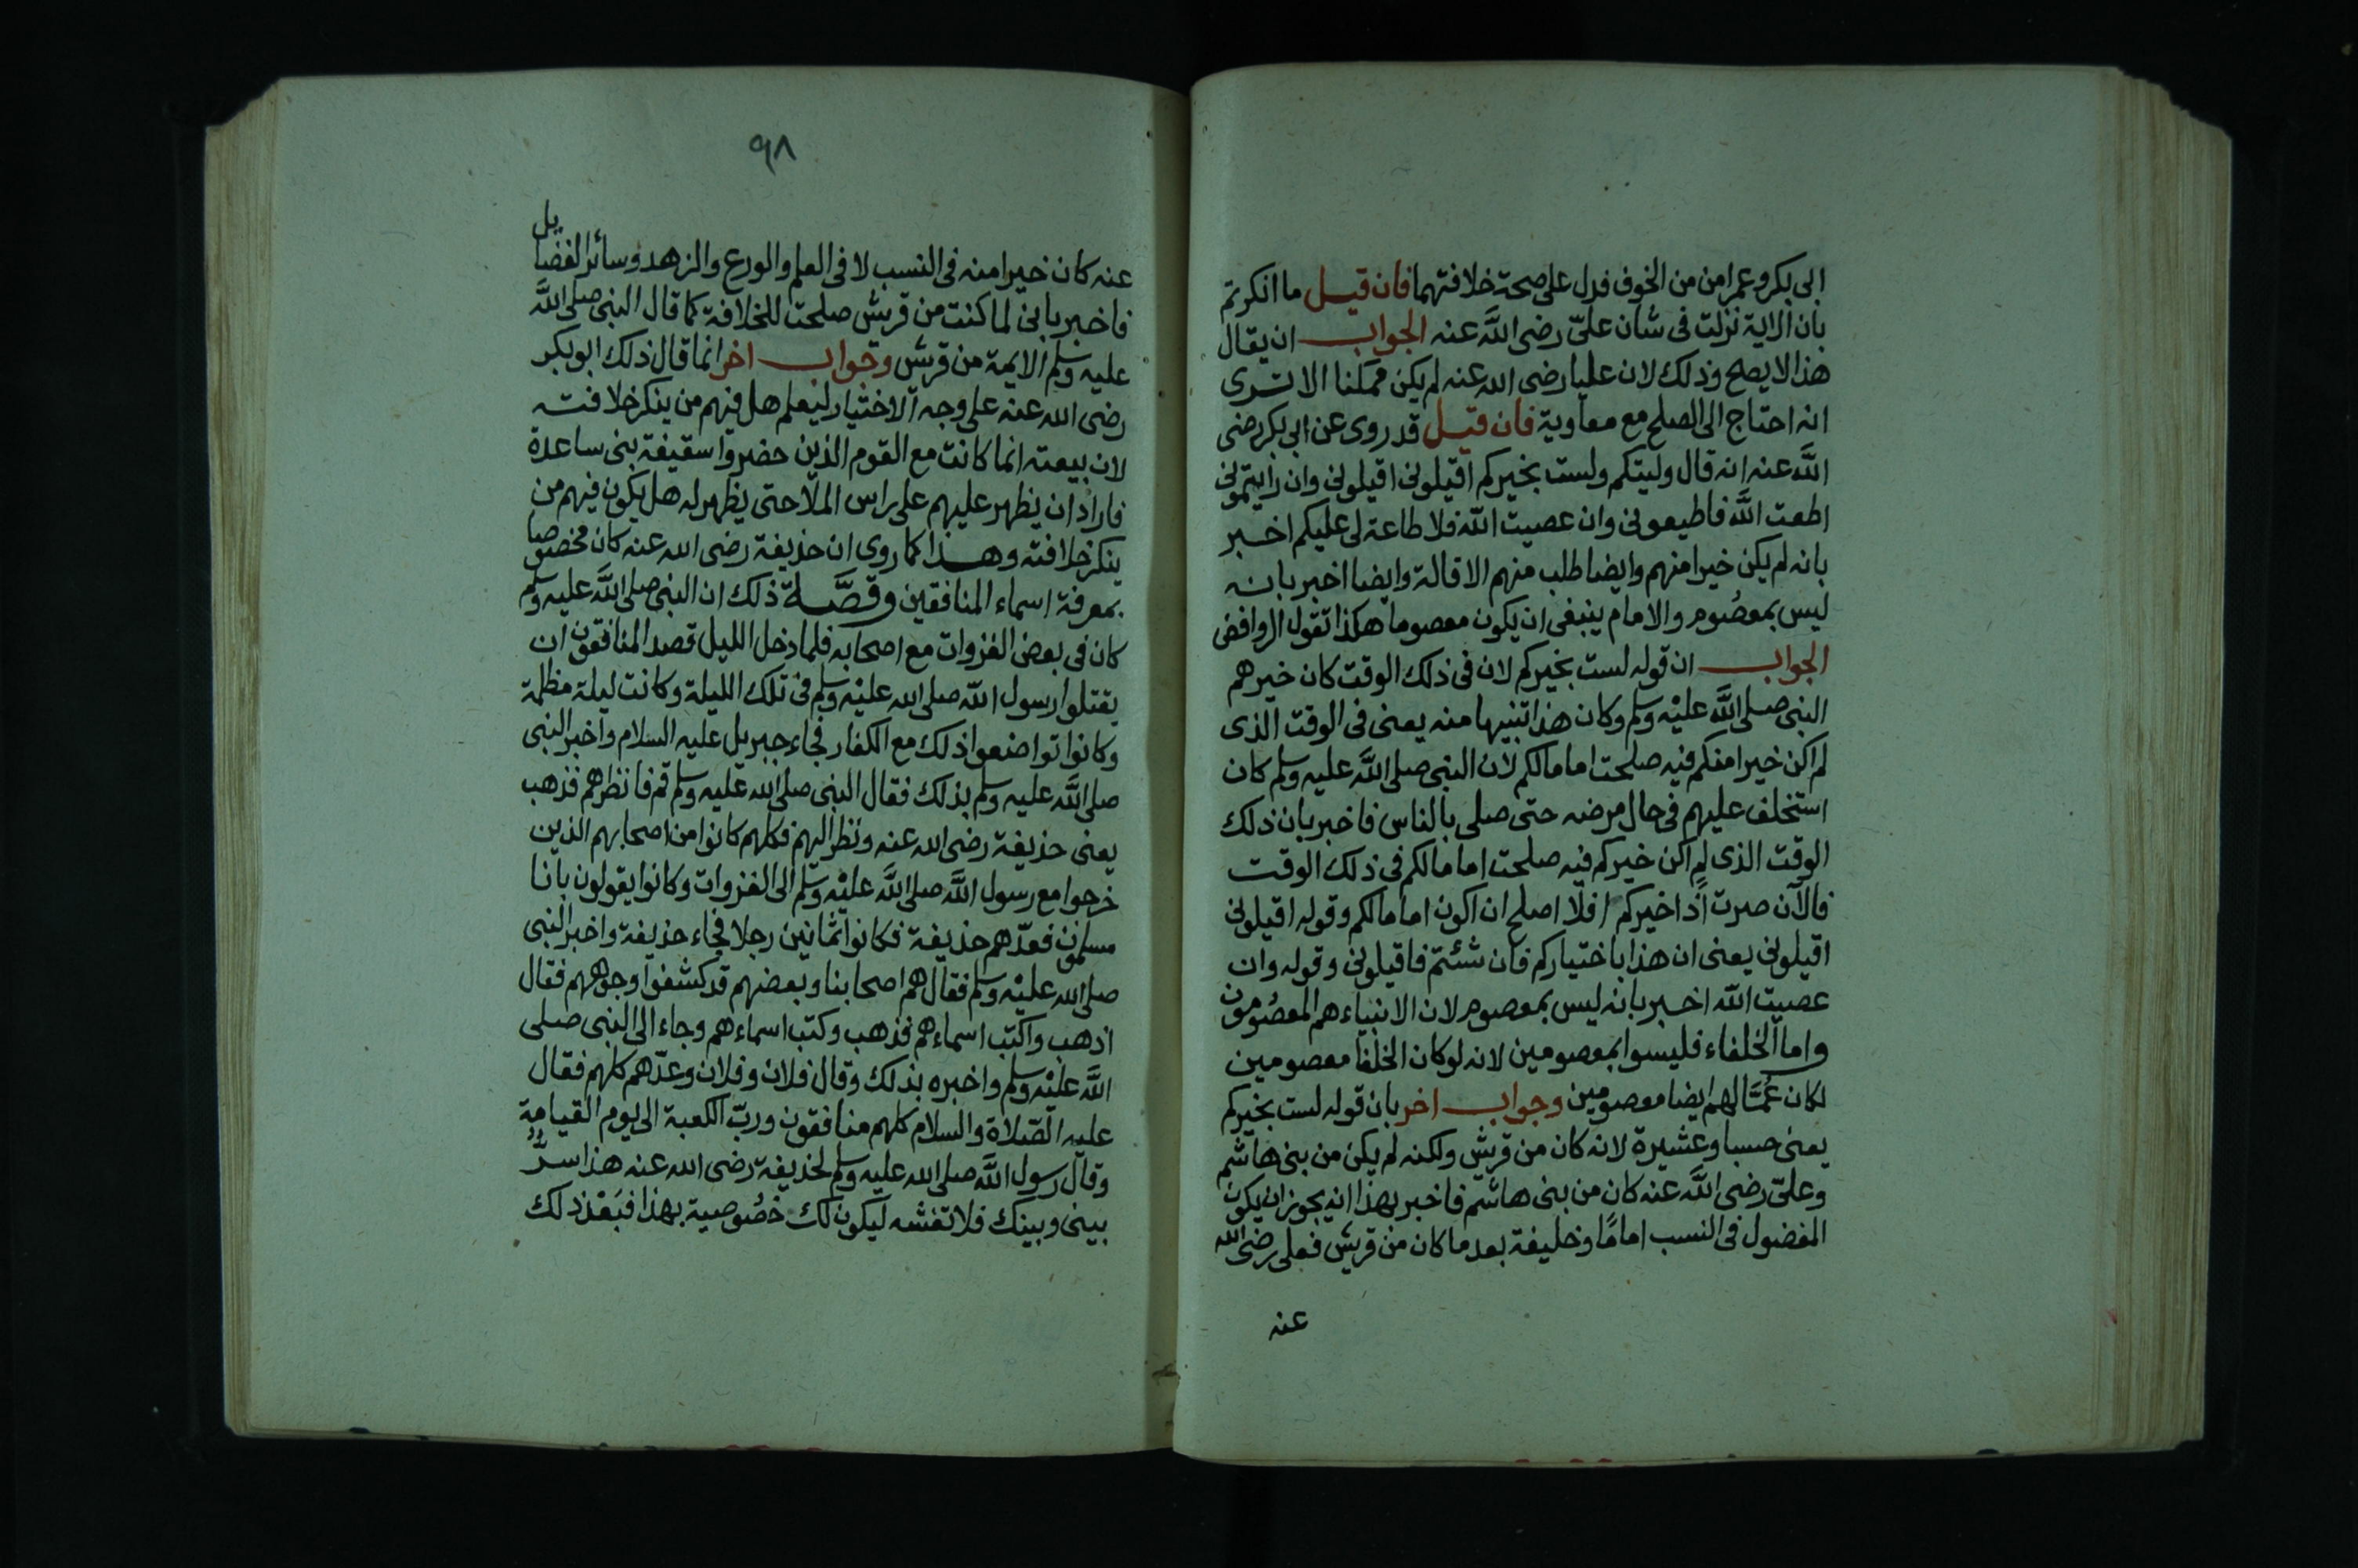 ابى بكر وعمر امن من الخوف فدل على صحة خلافتهما فان قيل ما انكرتم
بان الاية نزلت فى شان علىّ رضى الله عنه الجواب ان يقال
هذا لا يصح وذلك لان عليا رضى الله عنه لم يكن ممكنا الا ترى
انه احتاج الى الصلح مع معاوية فان قيل قد روى عن ابى بكر رضى
الله عنه انه قال وليتكم ولست بخيركم اقيلونى اقيلونى وان رايتمونى
اطعت الله فاطيعونى وان عصيت الله فلا طاعة لى عليكم اخبر
بانه لم يكن خيرا منهم وايضا طلب منهم الاقالة وايضا اخبر بانه
ليس بمعصوم والامام ينبغى ان يكون معصوما هكذا تقول الروافض
الجواب ان قوله لست بخيركم لان فى ذلك الوقت كان خيرهم
النبى صلى الله عليه وسلم وكان هذا تنبيها منه يعنى فى الوقت الذى
لم اكن خيرا منكم فيه صلحت اماما لكم لان النبى صلى الله عليه وسلم كان
استخلف عليهم فى حال مرضه حتى صلى بالناس فاخبر بان ذلك
الوقت الذى لم اكن خيركم فيه صلحت اماما لكم فى ذلك الوقت
فالآن صرت اذا خيركم افلا اصلح ان اكون اماما لكم وقوله اقيلونى
اقيلونى يعنى ان هذا باختياركم فان شئتم فاقيلونى وقوله وان
عصيت الله اخبر بانه ليس بمعصوم لان الانبياء هم المعصومون
واما الخلفاء فليسوا بمعصومين لانه لو كان الخلفا معصومين
لكان عُمّالهم ايضا معصومين وجواب اخر بان قوله لست بخيركم
يعنى حسبا وعشيرة لانه كان من قريش ولكنه لم يكن من بنى هاشم
وعلىّ رضى الله عنه كان من بنى هاشم فاخبر بهذا انه يجوز ان يكون
المفضول فى النسب امامًا وخليفة بعد ما كان من قريش فعلى رضى الله
عنه
٩٨
عنه كان خيرا منه فى النسب لا فى العلم والورع والزهد وسائر الفضايل
فاخبر بانى لما كنت من قريش صلحت للخلافة كما قال النبى صلى الله
عليه وسلم الايمة من قريش وجواب اخر انما قال ذلك ابو بكر
رضى الله عنه على وجه الاختيار ليعلم هل فيهم من ينكر خلافته
لان بيعته انما كانت مع القوم الذين حضروا سقيفة بنى ساعدة
فاراد ان يظهر عليهم على راس الملا حتى يظهر له هل يكون فيهم من
ينكر خلافته وهذا كما روى ان حذيفة رضى الله عنه كان مخصوصا
بمعرفة اسماء المنافقين وقصّة ذلك ان النبى صلى الله عليه وسلم
كان فى بعض الغزوات مع اصحابه فلما دخل الليل قصد المنافقون ان
يقتلوا رسول الله صلى الله عليه وسلم فى تلك الليلة وكانت ليلة مظلمة
وكانوا تواضعوا ذلك مع الكفار فجاء جبريل عليه السلام واخبر النبى
صلى الله عليه وسلم بذلك فقال النبى صلى الله عليه وسلم قم فانظرهم فذهب
يعنى حذيفة رضى الله عنه ونظر اليهم فكلهم كانوا من اصحابهم الذين
خرجوا مع رسول الله صلى الله عليه وسلم الى الغزوات وكانوا يقولون بانا
مسلمون فعدّهم حذيفة فكانوا ثمانين رجلا فجاء حذيفة واخبر النبى
صلى الله عليه وسلم فقال هم اصحابنا وبعضهم قد كشفوا وجوههم فقال
اذهب واكتب اسماءهم فذهب وكتب اسماءهم وجاء الى النبى صلى
الله عليه وسلم واخبره بذلك وقال فلان وفلان وعدّهم كلهم فقال
عليه الصلاة والسلام كلهم منافقون وربّ الكعبة الى يوم القيامة
وقال رسول الله صلى الله عليه وسلم لحذيفة رضى الله عنه هذا سرّ
بينى وبينك فلا تفشه ليكون لك خصُوصية بهذا فبَعْد ذلك